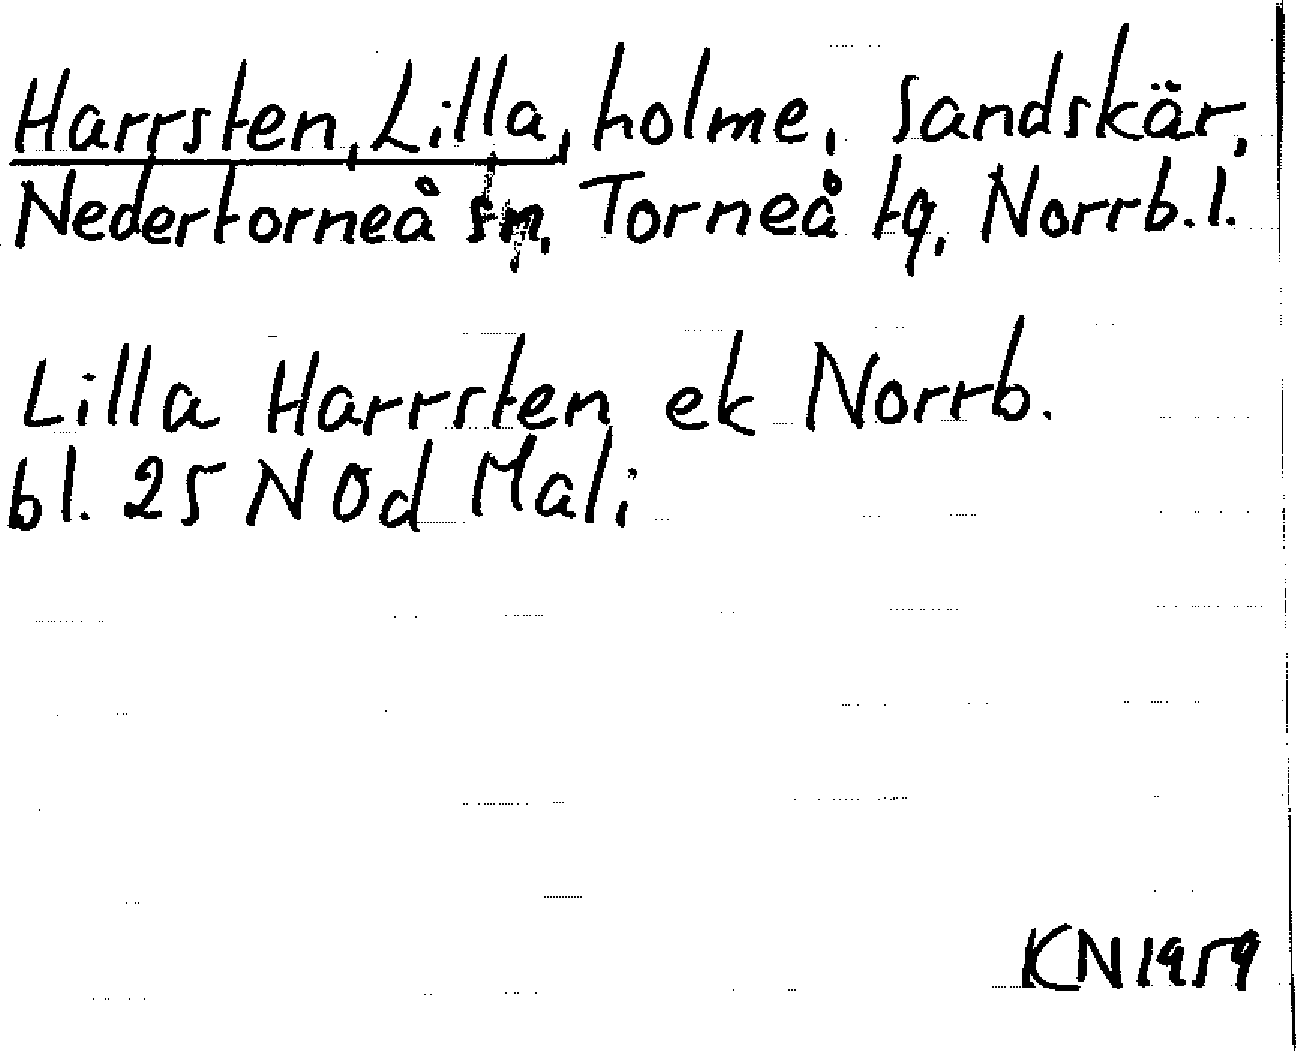 Harrsten, Lilla, holme, Sandskär,
Nedertorneå sn, Torneå tg, Norrb.l.
Lilla Harrsten ek Norrb.
bl. 25 NOd Mali
KN1959